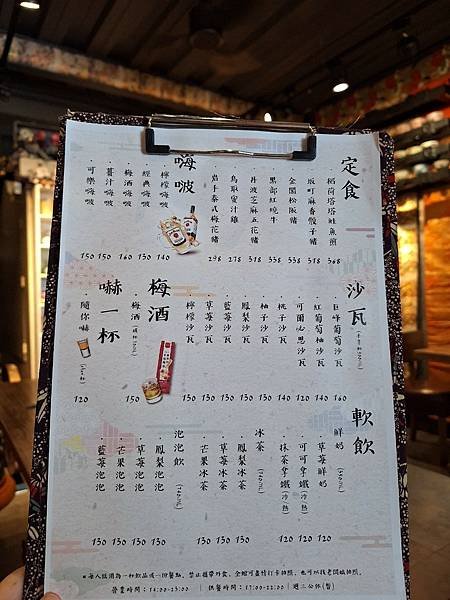 定食
稻荷塔塔鮭魚煎 368
坂町麻香骰子豬 318
金閣松阪豬 338
黑部紅燒牛 318
丹波芝麻五花豬 318
鳥取蜜汁雞 278
岩手泰式梅花豬 298
嗨啵
檸檬嗨啵 140
經典嗨啵 130
梅酒嗨啵 160
薑汁嗨啵 150
可樂嗨啵 150
沙瓦
巨峰葡萄沙瓦 160
紅葡萄柚沙瓦 140
可爾必思沙瓦 140
桃子沙瓦 130
柚子沙瓦 130
鳳梨沙瓦 130
藍莓沙瓦 130
草莓沙瓦 130
檸檬沙瓦 130
梅酒
梅酒 150
嚇一杯
隨你嚇 120
軟飲
鮮奶
草莓鮮奶 120
可可拿鐵(冷/熱) 120
抹茶拿鐵(冷/熱) 120
冰茶
鳳梨冰茶 130
草莓冰茶 130
芒果冰茶 130
泡泡飲
鳳梨泡泡 150
草莓泡泡 150
芒果泡泡 150
藍莓泡泡 150
營業時間：16:00-23:00 ｜ 供餐時間：17:00-22:00｜週三公休(暫)